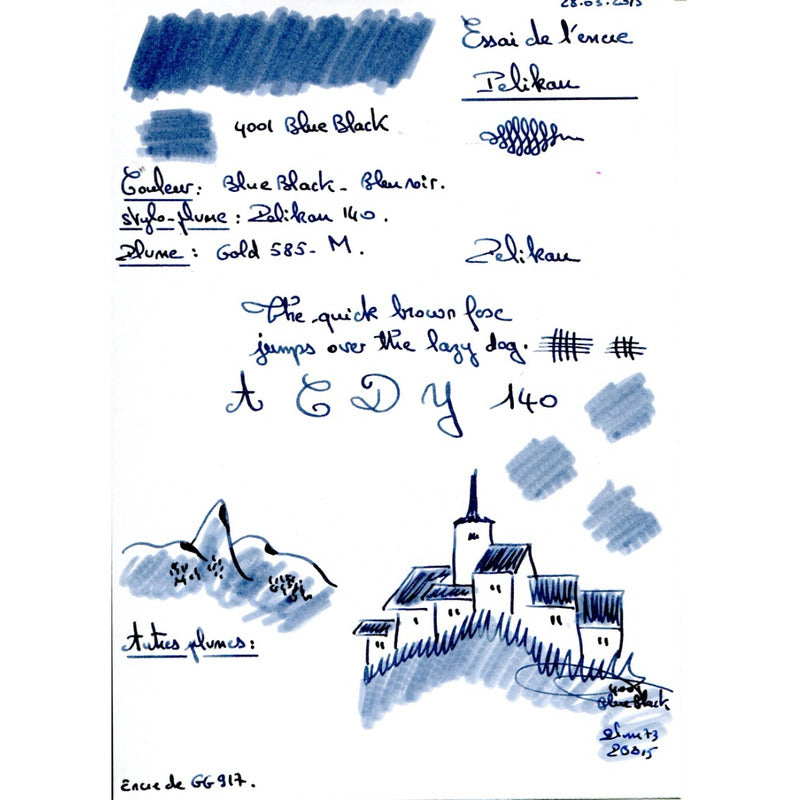 Essai de l'encre
Pelikan
4001 Blue Black
Couleur : Blue Black - Bleu noir.
stylo-plume : Pelikan 140.
Plume : Gold 585 - M.
Pelikan
The quick brown fox
jumps over the lazy dog.
A C D Y 140
Autres plumes :
4001
Blue Black
Encre de GG917.